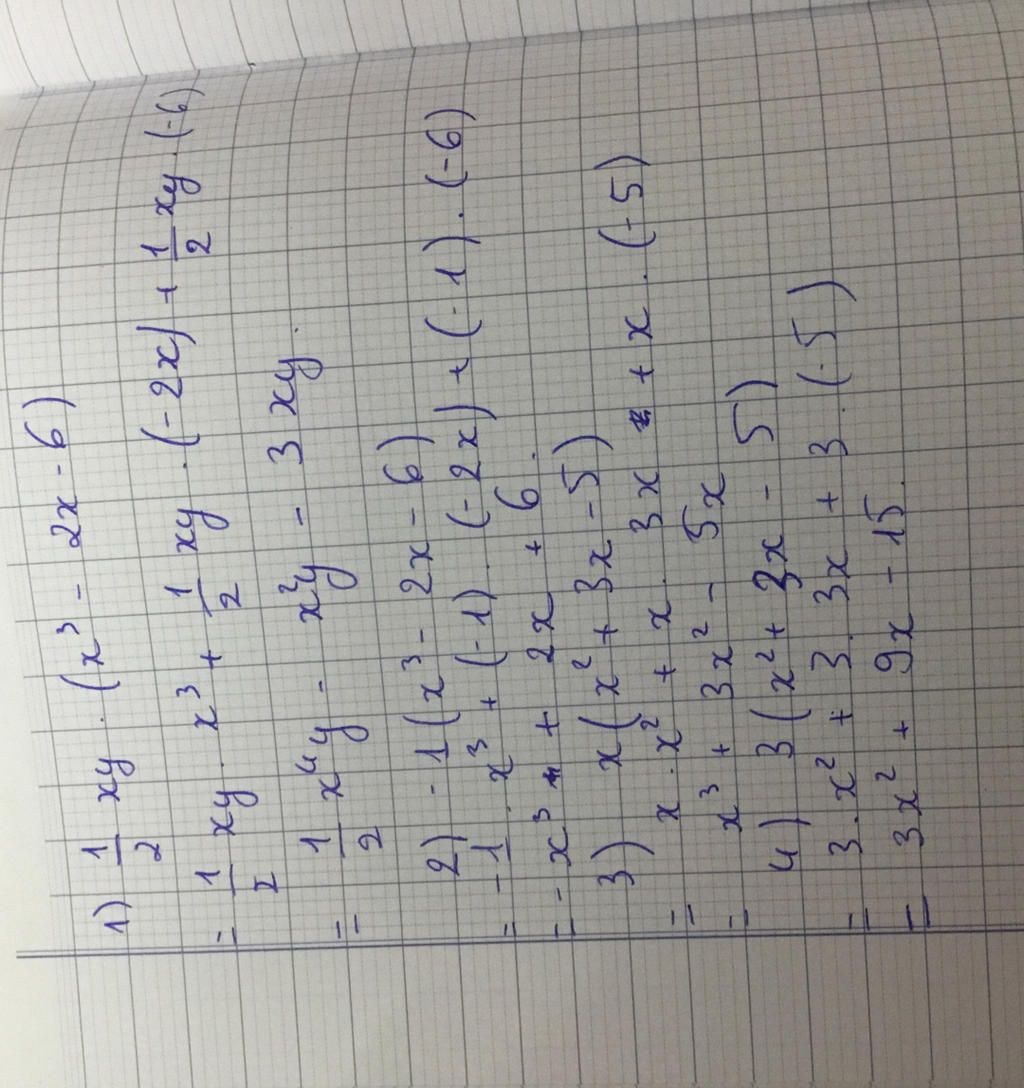 1) 1/2 xy . (x³ - 2x - 6)
= 1/2 xy . x³ + 1/2 xy . (-2x) + 1/2 xy . (-6)
= 1/2 x⁴y - x²y - 3xy.
2) -1(x³ - 2x - 6)
= -1 . x³ + (-1) . (-2x) + (-1) . (-6)
= -x³ + 2x + 6.
3) x(x² + 3x - 5)
= x . x² + x . 3x + x . (-5)
= x³ + 3x² - 5x
4) 3(x² + 3x - 5)
= 3 . x² + 3 . 3x + 3 . (-5)
= 3x² + 9x - 15.